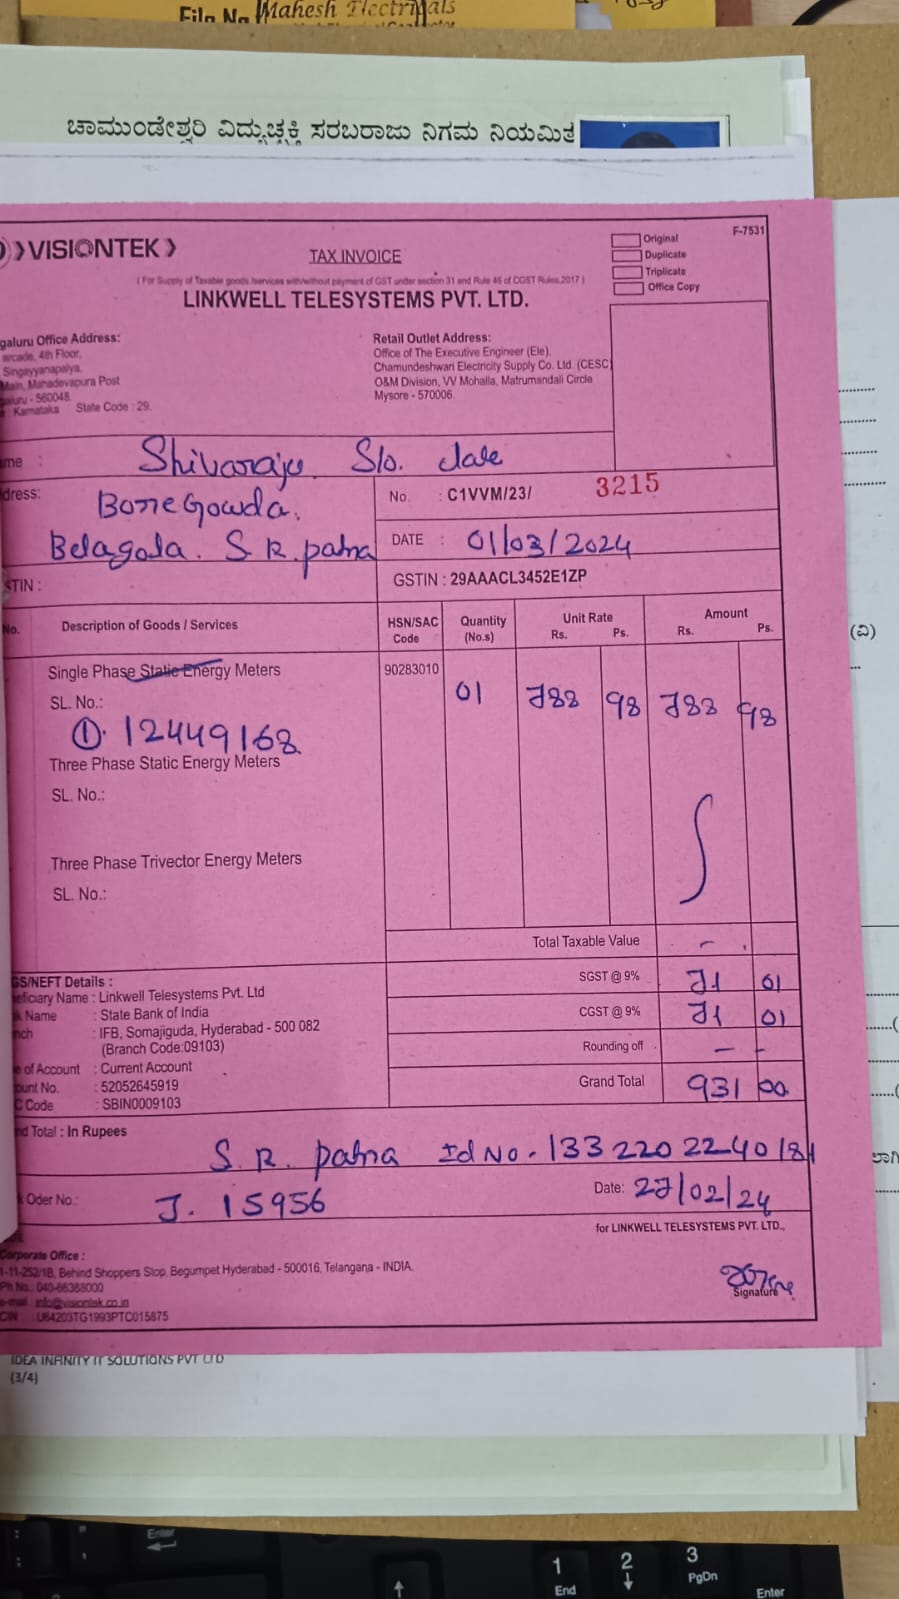 File No Mahesh Electricals
ಚಾಮುಂಡೇಶ್ವರಿ ವಿದ್ಯುಚ್ಛಕ್ತಿ ಸರಬರಾಜು ನಿಗಮ ನಿಯಮಿತ
VISIONTEK
TAX INVOICE
Original
F-7531
Duplicate
Triplicate
Office Copy
( For Supply of Taxable goods /services with/without payment of GST under section 31 and Rule 46 of CGST Rules,2017 )
LINKWELL TELESYSTEMS PVT. LTD.
galuru Office Address:
arcade, 4th Floor,
Singayyanapalya,
Main, Mahadevapura Post
galuru - 560048.
: Karnataka State Code : 29.
Retail Outlet Address:
Office of The Executive Engineer (Ele),
Chamundeshwari Electricity Supply Co. Ltd. (CESC)
O&M Division, VV Mohalla, Matrumandali Circle
Mysore - 570006.
ame : Shivaraju S/o. late
dress: BoreGowda.
Belagola. S R. patna
No. : C1VVM/23/ 3215
DATE : 01/03/2024
STIN :
GSTIN : 29AAACL3452E1ZP
No. Description of Goods / Services HSN/SAC Code Quantity (No.s) Unit Rate Rs. Ps. Amount Rs. Ps.
Single Phase Static Energy Meters 90283010 01 788 98 788 98
SL. No.:
①. 12449168
Three Phase Static Energy Meters
SL. No.:
Three Phase Trivector Energy Meters
SL. No.:
Total Taxable Value -
SGST @ 9% 71 01
CGST @ 9% 71 01
Rounding off - -
Grand Total 931 00
GS/NEFT Details :
eficiary Name : Linkwell Telesystems Pvt. Ltd
k Name : State Bank of India
nch : IFB, Somajiguda, Hyderabad - 500 082
(Branch Code:09103)
e of Account : Current Account
ount No. : 52052645919
C Code : SBIN0009103
nd Total : In Rupees
S. R. patna Id No. 1332202240181
Oder No.: J. 15956 Date: 27/02/24
for LINKWELL TELESYSTEMS PVT. LTD.,
Corporate Office :
1-11-252/1B, Behind Shoppers Stop, Begumpet Hyderabad - 500016, Telangana - INDIA.
Ph No.: 040-66368000
e-mail : info@visiontek.co.in
CIN : U64203TG1993PTC015875
Signature
IDEA INFINITY IT SOLUTIONS PVT LTD
(3/4)
(ಎ)
Enter
1
End
2
3
PgDn
Enter